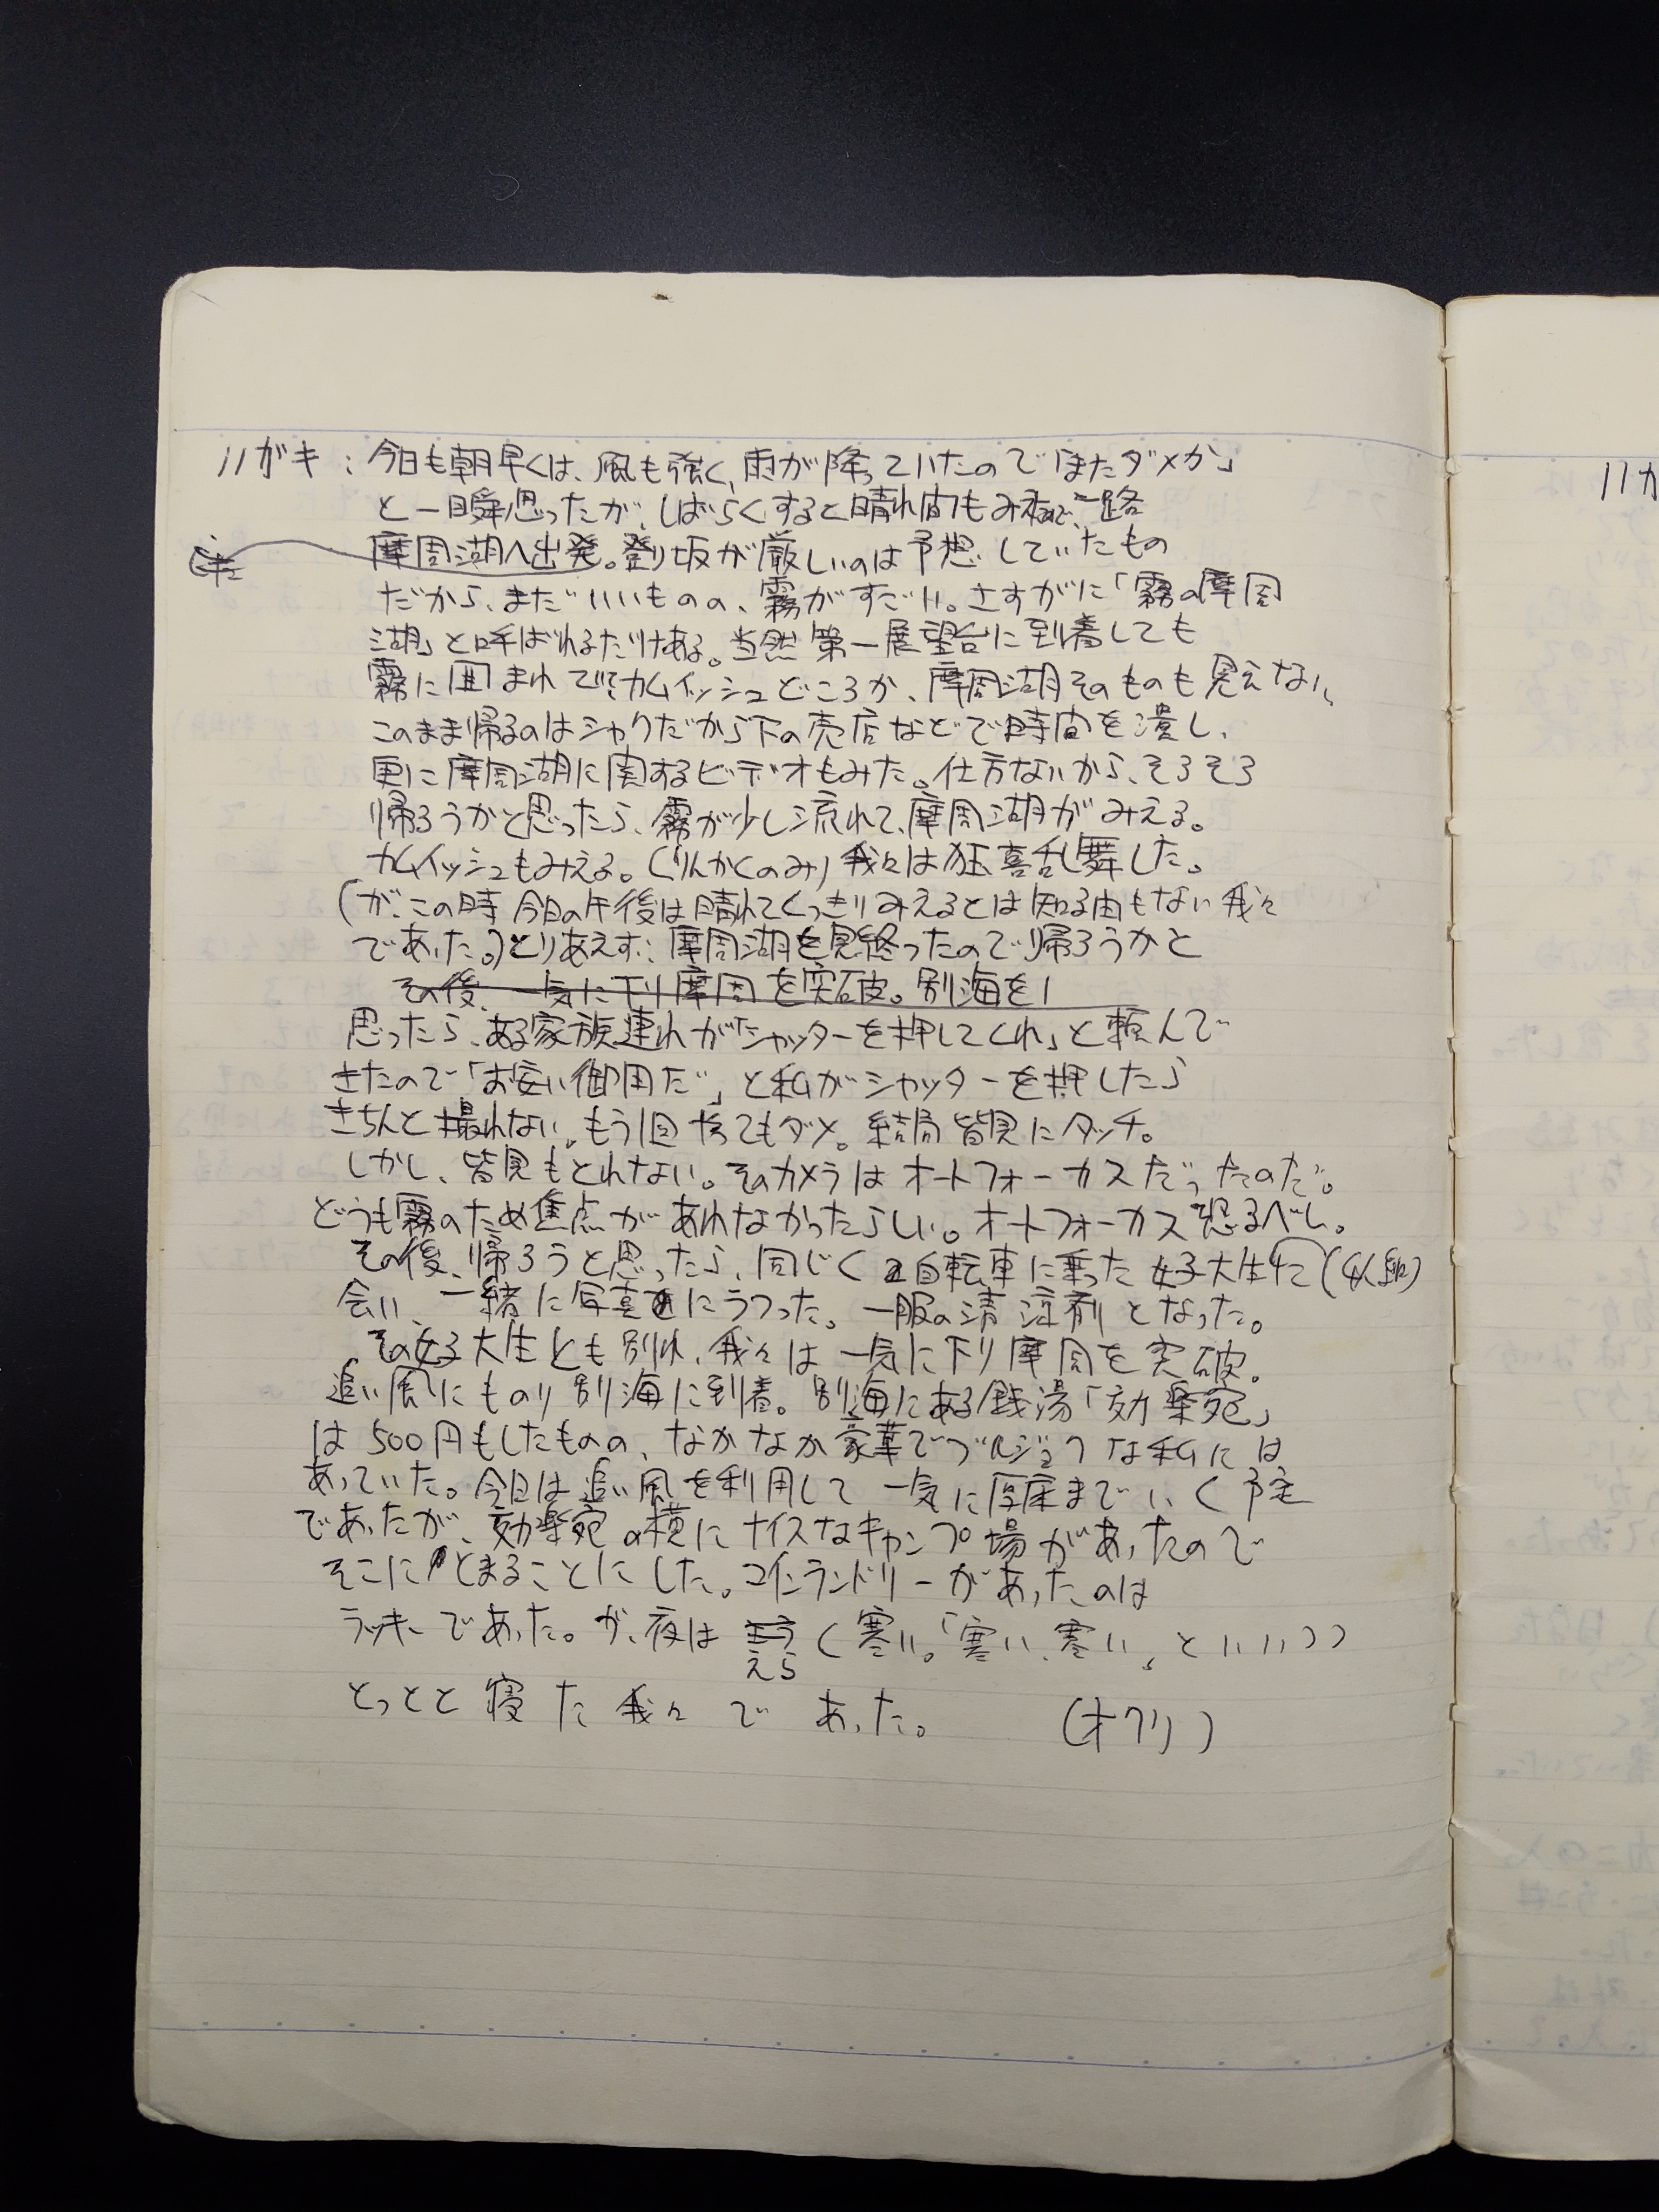 ハガキ：今日も朝早くは、風も強く、雨が降っていたので「またダメか」
と一瞬思ったが、しばらくすると晴れ間もみえたので、一路
摩周湖へ出発。登り坂が厳しいのは予想していたもの
だから、まだいいものの、霧がすごい。さすがに「霧の摩周
湖」と呼ばれるだけある。当然第一展望台に到着しても
霧に囲まれててカムイッシュどころか、摩周湖そのものも見えない、
このまま帰るのはシャクだから下の売店などで時間を潰し、
更に摩周湖に関するビデオもみた。仕方ないから、そろそろ
帰ろうかと思ったら、霧が少し流れて、摩周湖がみえる。
カムイッシュもみえる。(りんかくのみ) 我々は狂喜乱舞した。
(が、この時 今日の午後は晴れてくっきりみえるとは知る由もない我々
であった。)とりあえず、摩周湖を見終ったので帰ろうかと
その後、一気に下り摩周を突破。別海を
思ったら、ある家族連れが「シャッターを押してくれ」と頼んで
きたので「お安い御用だ」と私がシャッターを押したら
きちんと撮れない。もう1回やってもダメ。結局皆見にタッチ。
しかし、皆見もとれない。そのカメラはオートフォーカスだったのだ。
どうも霧のため焦点があわなかったらしい。オートフォーカス恐るべし。
その後、帰ろうと思ったら、同じく自転車に乗った女子大生たに(4人組)
会い、一緒に写真にうつった。一服の清涼剤となった。
その女子大生とも別れ、我々は一気に下り摩周を突破。
追い風にものり別海に到着。別海にある銭湯「効楽宛」
は500円もしたものの、なかなか豪華でブルジョワな私には
あっていた。今日は追い風を利用して一気に厚床までいく予定
であったが、効楽宛の横にナイスなキャンプ場があったので
そこにとまることにした。コインランドリーがあったのは
ラッキーであった。が、夜は えらく寒い。「寒い、寒い」といいつつ
とっとと寝た我々であった。 (オクリ)
ハガ